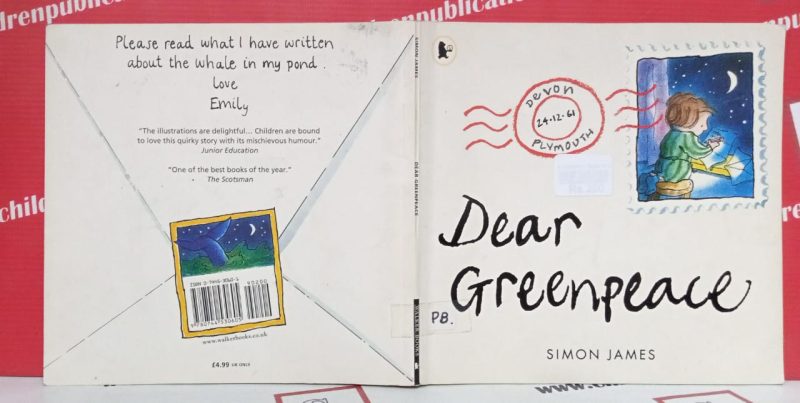 Please read what I have written
about the whale in my pond.
love
Emily
"The illustrations are delightful... Children are bound
to love this quirky story with its mischievous humour."
Junior Education
"One of the best books of the year."
The Scotsman
90200
9 780744 530605
www.walkerbooks.co.uk
£4.99 UK ONLY
SIMON JAMES
DEAR GREENPEACE
WALKER BOOKS
PB.
DEVON
24-12-61
PLYMOUTH
Dear
Greenpeace
SIMON JAMES
drenpublicatio
enpubl
childr
drenpublic
www.